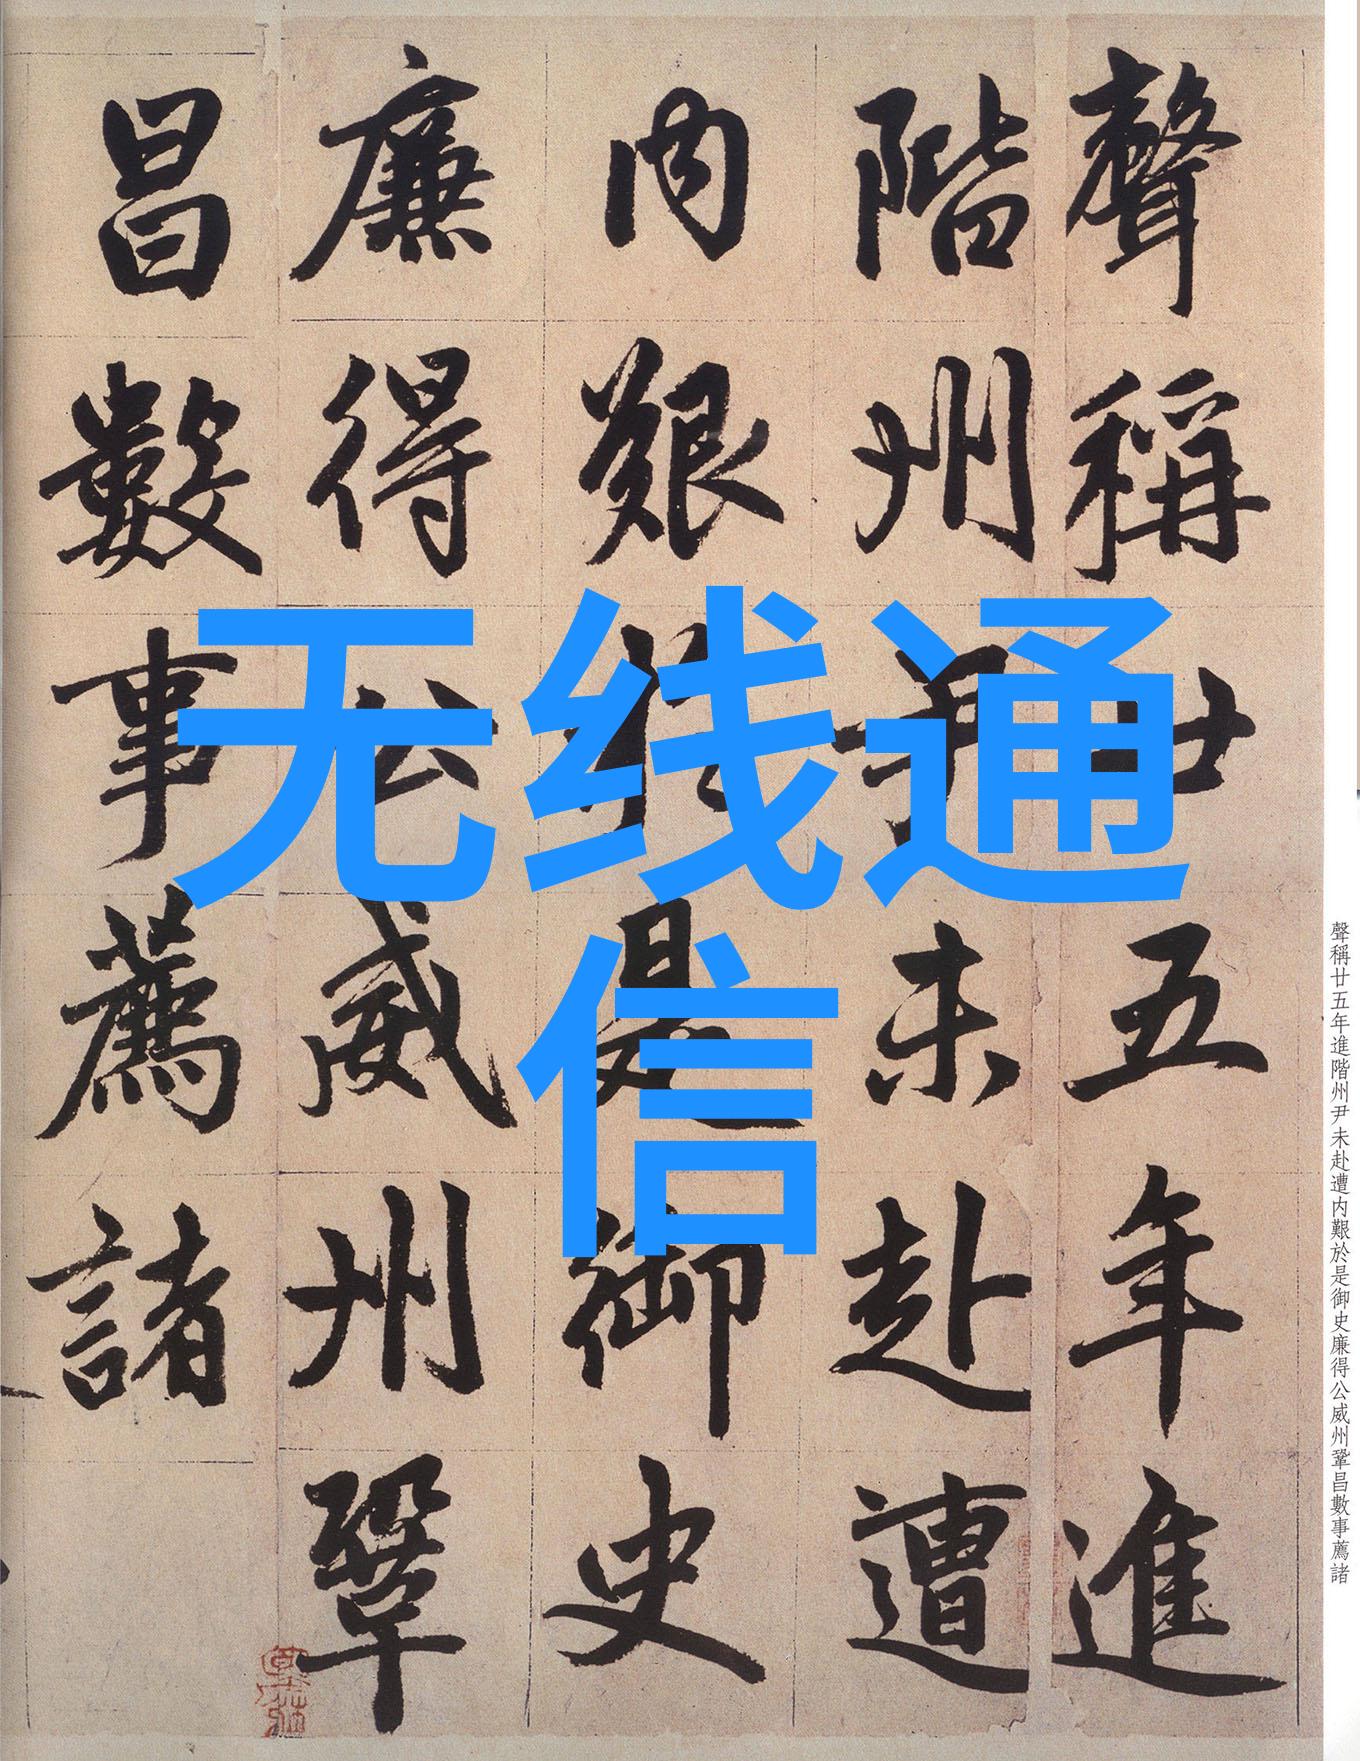 聲稱廿五年進
階州尹未赴遭
内艱於是御史
廉得公威州鞏
昌數事薦諸
无线通
信
聲稱廿五年進階州尹未赴遭内艱於是御史廉得公威州鞏昌數事薦諸